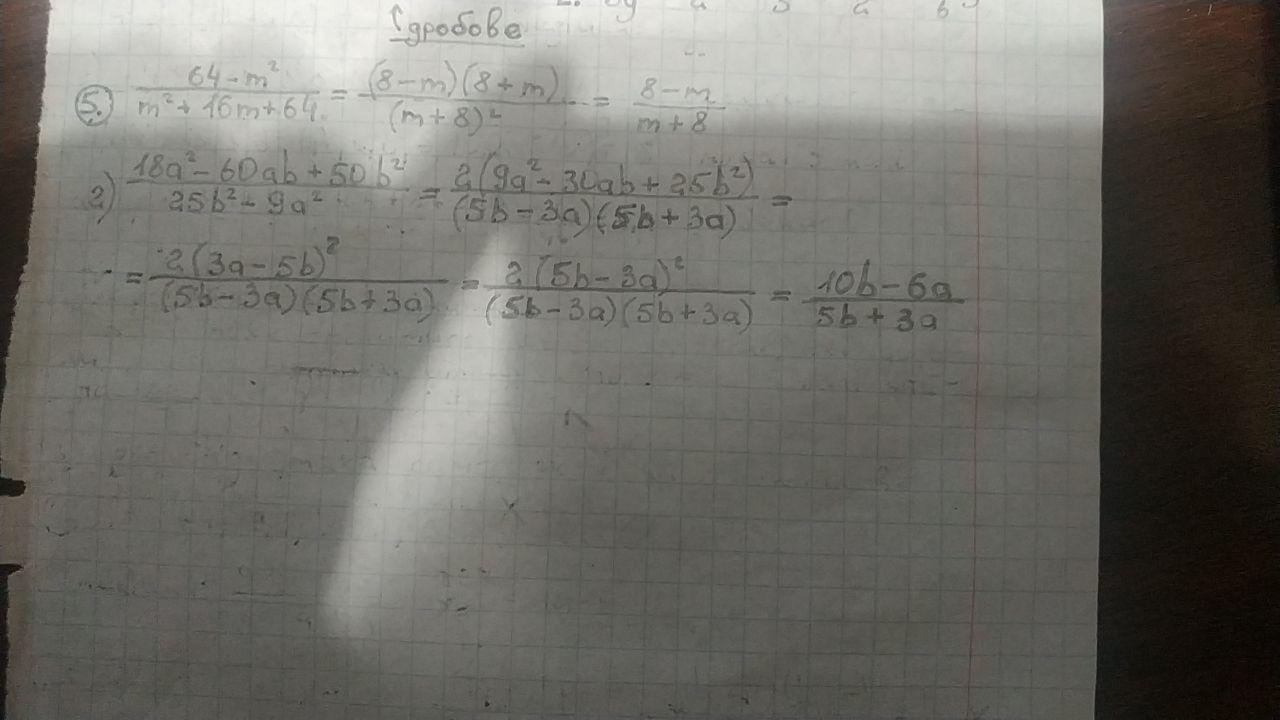 дробове
5. (64-m²)/(m²+16m+64) = ((8-m)(8+m))/((m+8)²) = (8-m)/(m+8)
2) (18a²-60ab+50b²)/(25b²-9a²) = (2(9a²-30ab+25b²))/((5b-3a)(5b+3a)) =
= (2(3a-5b)²)/((5b-3a)(5b+3a)) = (2(5b-3a)²)/((5b-3a)(5b+3a)) = (10b-6a)/(5b+3a)